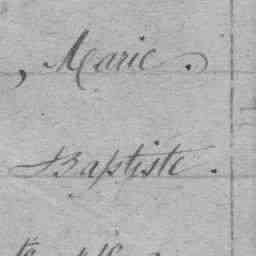 , Marie.
Baptiste.